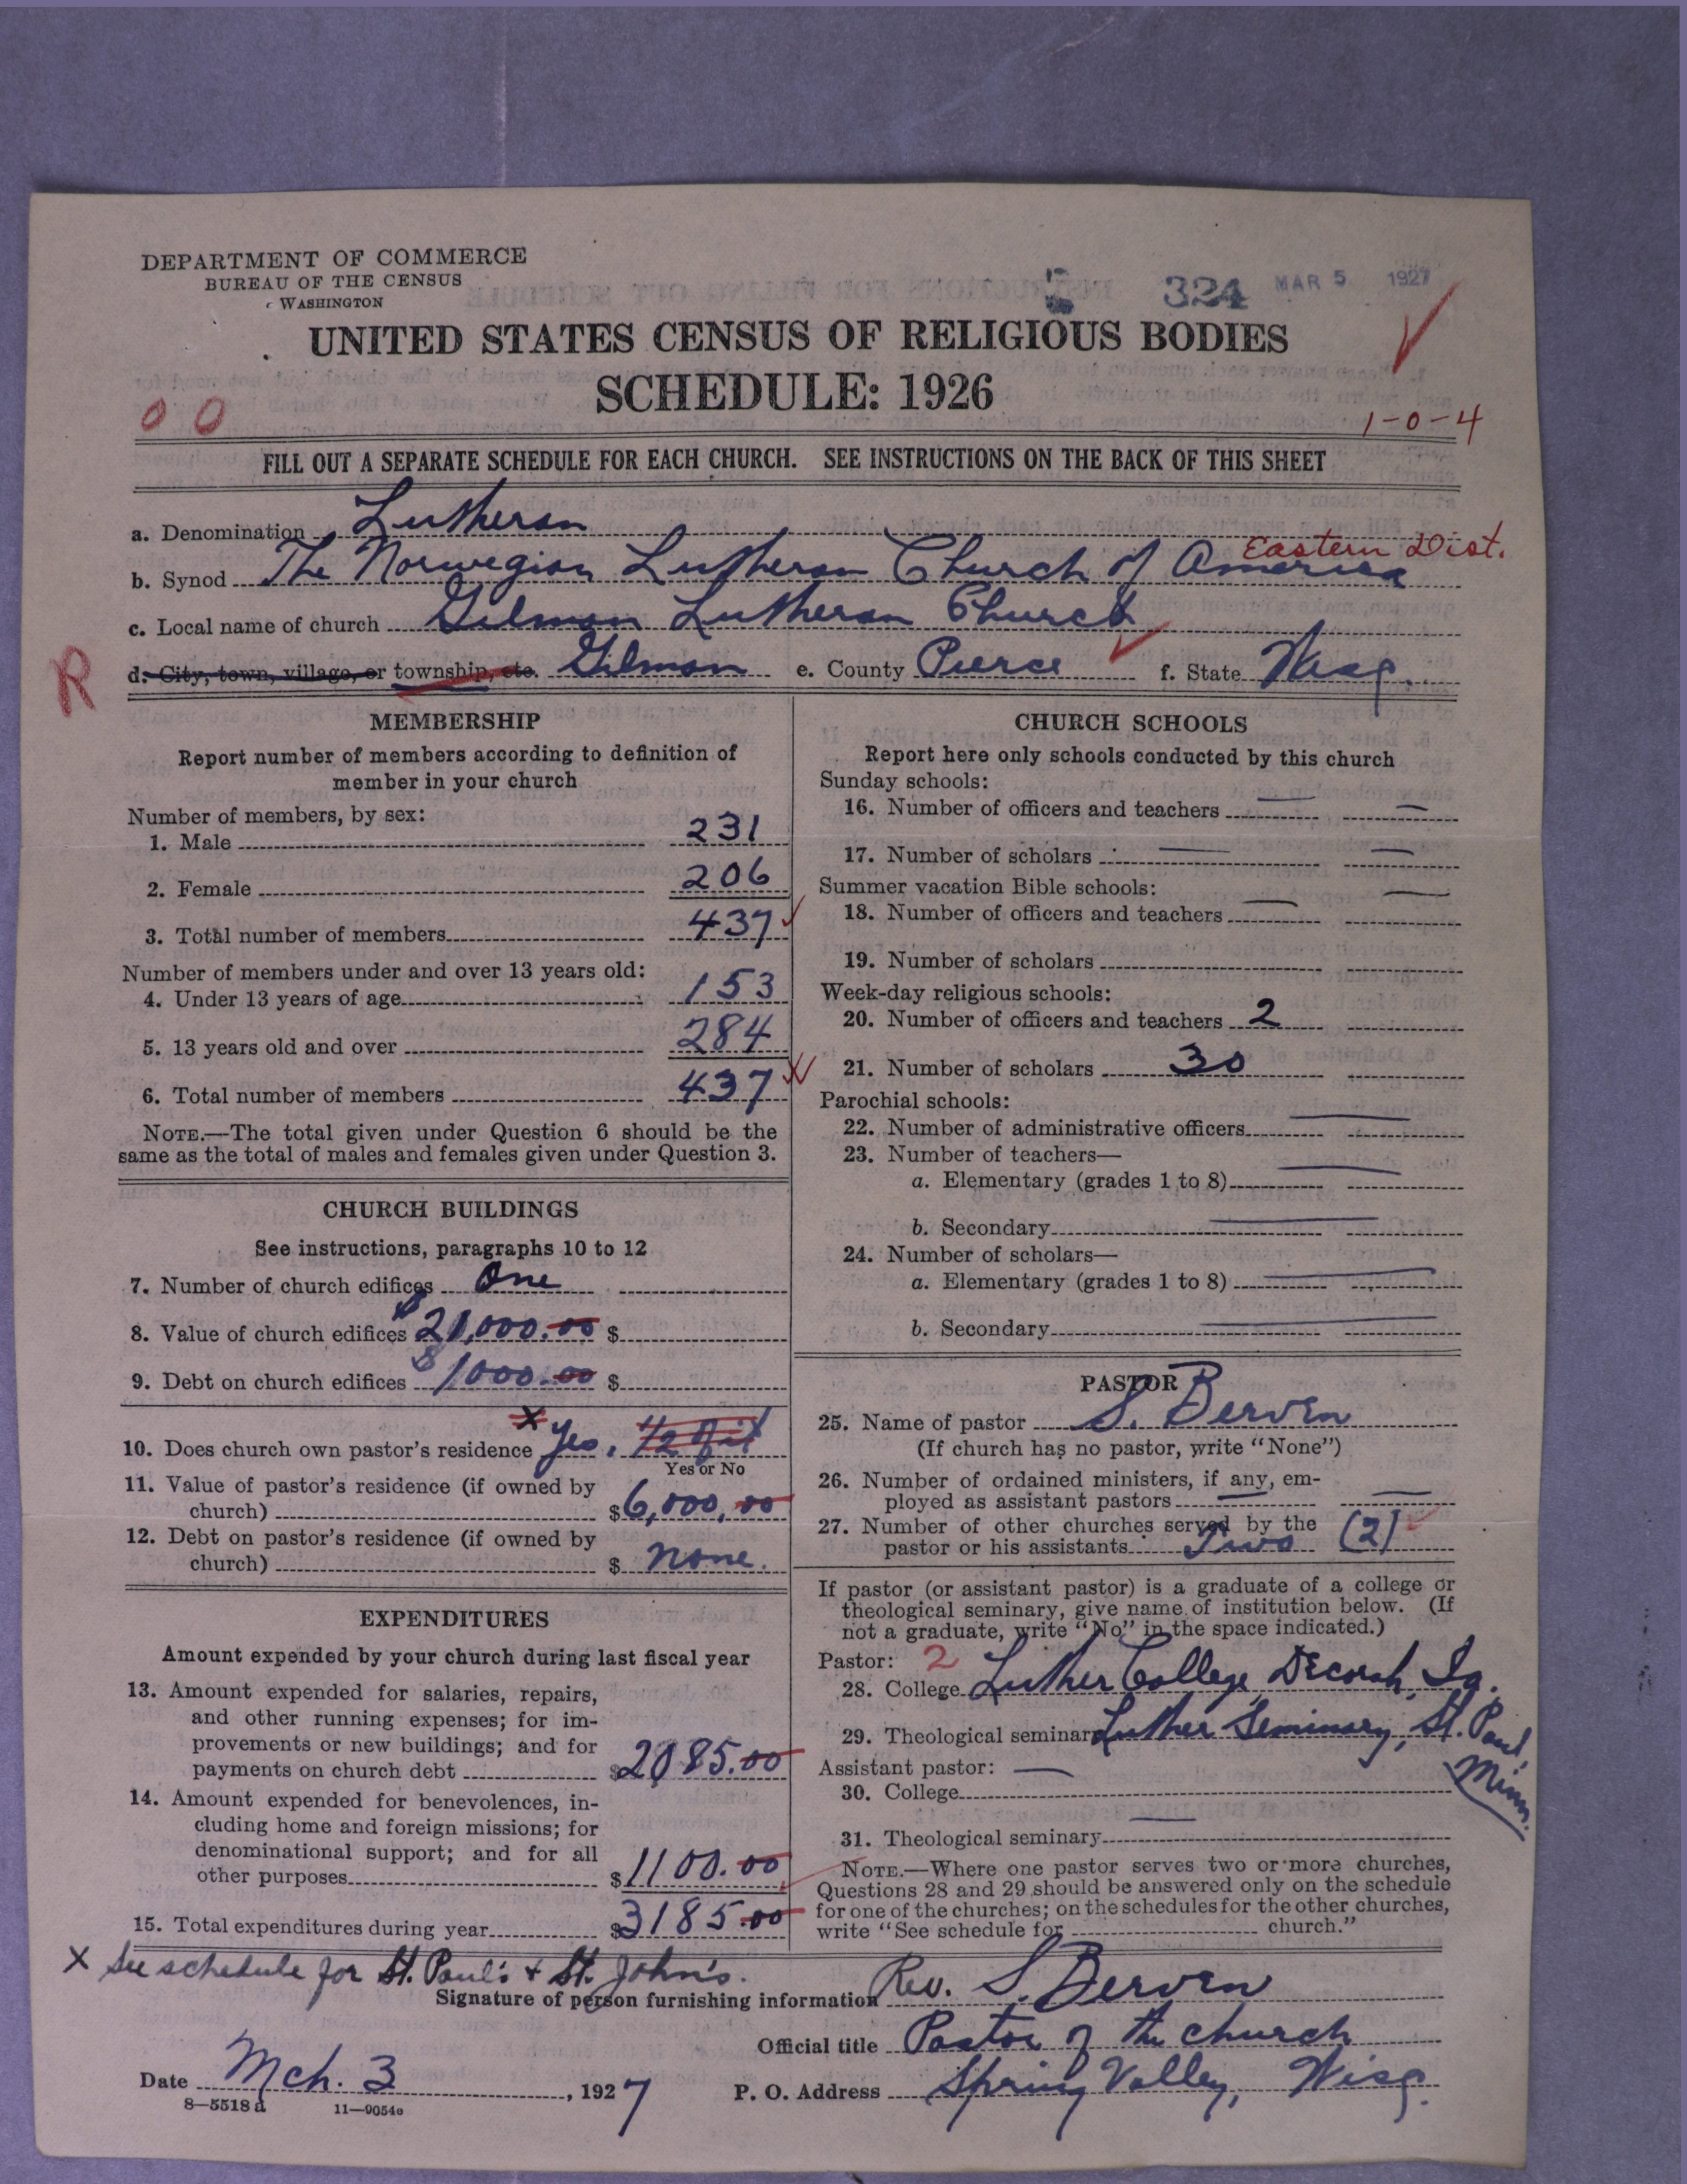 DEPARTMENT OF COMMERCE
BUREAU OF THE CENSUS
WASHINGTON
324 MAR 5 1927
UNITED STATES CENSUS OF RELIGIOUS BODIES
SCHEDULE: 1926
0 0
1-0-4
FILL OUT A SEPARATE SCHEDULE FOR EACH CHURCH. SEE INSTRUCTIONS ON THE BACK OF THIS SHEET
a. Denomination Lutheran
Eastern Dist.
b. Synod The Norwegian Lutheran Church of America
c. Local name of church Gilman Lutheran Church
R
d. City, town, village, or township, etc. Gilman e. County Pierce f. State Wisc.
MEMBERSHIP
Report number of members according to definition of
member in your church
Number of members, by sex:
1. Male 231
2. Female 206
3. Total number of members 437
Number of members under and over 13 years old:
4. Under 13 years of age 153
5. 13 years old and over 284
6. Total number of members 437
NOTE.—The total given under Question 6 should be the
same as the total of males and females given under Question 3.
CHURCH BUILDINGS
See instructions, paragraphs 10 to 12
7. Number of church edifices One
8. Value of church edifices $21,000.00 $
9. Debt on church edifices $1000.00 $
10. Does church own pastor's residence x Yes. 1/2 of it
Yes or No
11. Value of pastor's residence (if owned by
church) $6,000.00
12. Debt on pastor's residence (if owned by
church) $ none.
EXPENDITURES
Amount expended by your church during last fiscal year
13. Amount expended for salaries, repairs,
and other running expenses; for im-
provements or new buildings; and for
payments on church debt $2085.00
14. Amount expended for benevolences, in-
cluding home and foreign missions; for
denominational support; and for all
other purposes $1100.00
15. Total expenditures during year $3185.00
CHURCH SCHOOLS
Report here only schools conducted by this church
Sunday schools:
16. Number of officers and teachers
17. Number of scholars
Summer vacation Bible schools:
18. Number of officers and teachers
19. Number of scholars
Week-day religious schools:
20. Number of officers and teachers 2
21. Number of scholars 30
Parochial schools:
22. Number of administrative officers
23. Number of teachers—
a. Elementary (grades 1 to 8)
b. Secondary
24. Number of scholars—
a. Elementary (grades 1 to 8)
b. Secondary
PASTOR
25. Name of pastor S. Berven
(If church has no pastor, write "None")
26. Number of ordained ministers, if any, em-
ployed as assistant pastors
27. Number of other churches served by the
pastor or his assistants Two (2)
If pastor (or assistant pastor) is a graduate of a college or
theological seminary, give name of institution below. (If
not a graduate, write "No" in the space indicated.)
Pastor: 2
28. College Luther College, Decorah, Ia.
29. Theological seminary Luther Seminary, St. Paul, Minn.
Assistant pastor:
30. College
31. Theological seminary
NOTE.—Where one pastor serves two or more churches,
Questions 28 and 29 should be answered only on the schedule
for one of the churches; on the schedules for the other churches,
write "See schedule for church."
x See schedule for St. Paul's + St. John's.
Signature of person furnishing information Rev. S. Berven
Official title Pastor of the church
Date Mch. 3, 1927 P. O. Address Spring Valley, Wisc.
8—5518 a 11—9054e